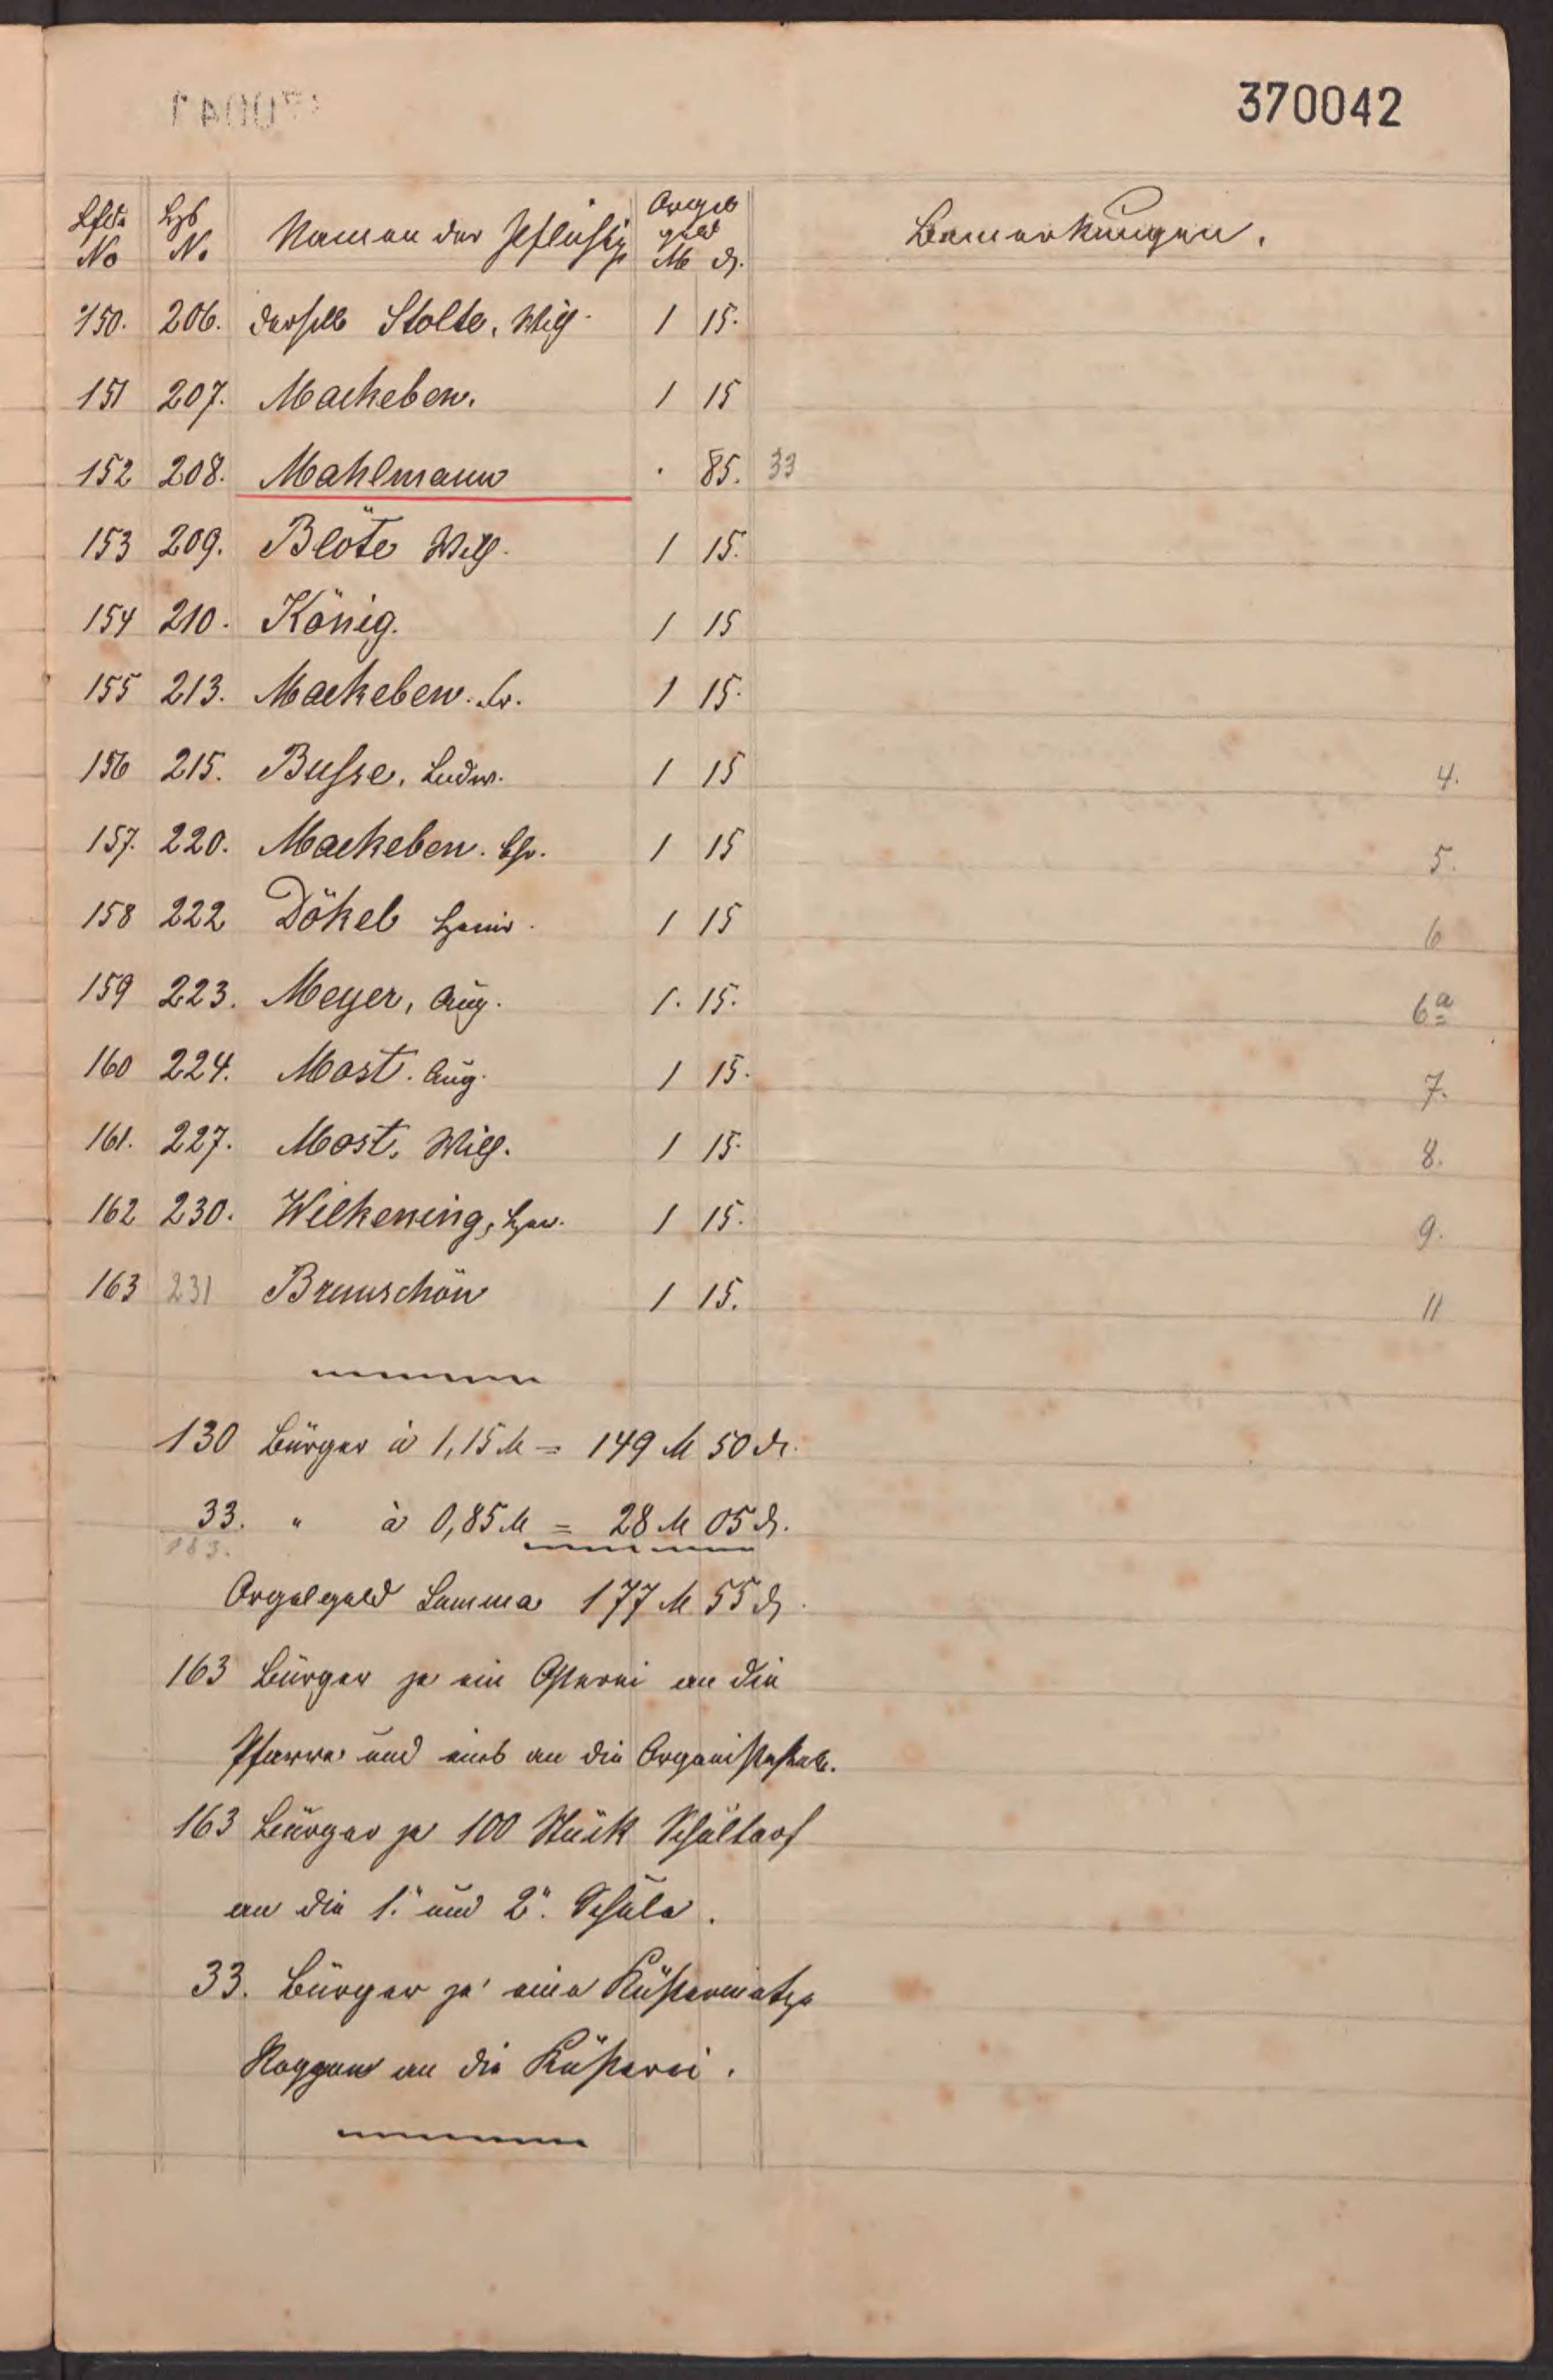 370042
Lfde No Hs No Namen der Pflichtig Orgel geld M ₰ Bemerkungen.
150. 206. derselbe Stolte, Wilh. 1 15.
151 207. Mackeben. 1 15
152 208. Mahlmann . 85. 33
153 209. Blöte Wilh. 1 15.
154 210. König. 1 15
155 213. Mackeben. Fr. 1 15.
156 215. Busse, Ludw. 1 15 4.
157. 220. Mackeben. Chr. 1 15 5.
158 222 Dökel Heinr. 1 15 6
159 223. Meyer, Aug. 1. 15. 6a
160 224. Most. Aug. 1 15. 7.
161. 227. Most, Wilh. 1 15. 8.
162 230. Wilkening, 1 15. 9.
163 231 Brunschön 1 15. 11
130 Bürger à 1,15 M = 149 M 50 ₰.
33. " à 0,85 M = 28 M 05 ₰.
163.
Orgelgeld Summa 177 M 55 ₰.
163 Bürger je ein Osterei an die
Pfarre und eins an die
163 Bürger je 100 Stück Schultorf
an die 1. und 2. Schule.
33. Bürger je eine Küstermatze
Roggen an die Küsterei.